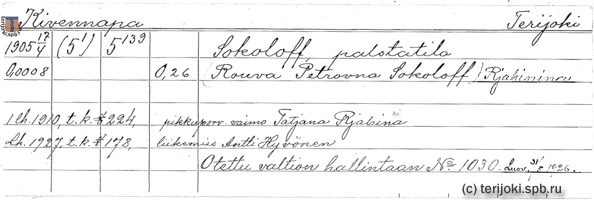 Kivennapa Terijoki
1905 17/4 (5¹) 5¹³⁹ Sokoloff, palstatila
0,0008 0,26 (Rouva Petrovna Sokoloff)
1 lh. 1910, t.k. # 224, pikkuporv. vaimo Tatjana Rjabina
Lh. 1927, t.k. # 178, liikemies Antti Hyvönen
Otettu valtion hallintaan № 1030.
(c) terijoki.spb.ru